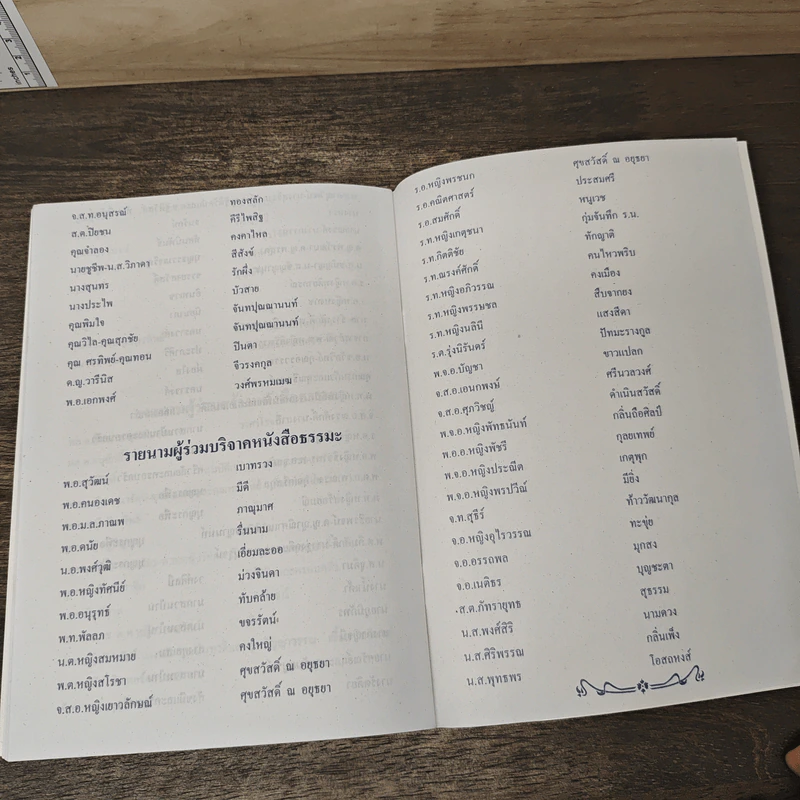 จ.ส.ท.อนุสรณ์ ทองสลัก
ส.ต.ปิยชน คีรีไพสิฐ
คุณจำลอง คงคาไหล
นายชูชีพ-น.ส.วิภาดา สีสังข์
นางสุนทร รักผึ้ง
นางประไพ บัวสาย
คุณพิมใจ จันทปุณณานนท์
คุณวิไล-คุณสุภชัย จันทปุณณานนท์
คุณ ศรทิพย์-คุณทอน ปินตา
ด.ญ.วารีนิส จีวรงคกุล
พ.อ.เอกพงศ์ วงศ์พรหมเมฆ
รายนามผู้ร่วมบริจาคหนังสือธรรมะ
พ.อ.สุวัฒน์ เบาทรวง
พ.อ.คนองเดช มีดี
พ.อ.ม.ล.ภาณพ ภาณุมาศ
พ.อ.ดนัย รื่นนาม
น.อ.พงศ์วุฒิ เอี่ยมละออ
พ.อ.หญิงทัศนีย์ ม่วงจินดา
พ.อ.อนุรุทธ์ ทับคล้าย
พ.ท.พัลลภ ขจรรัตน์
น.ต.หญิงสมหมาย คงใหญ่
พ.ต.หญิงสโรชา ศุขสวัสดิ์ ณ อยุธยา
จ.ส.อ.หญิงเยาวลักษณ์ ศุขสวัสดิ์ ณ อยุธยา
ร.อ.หญิงพรชนก ศุขสวัสดิ์ ณ อยุธยา
ร.อ.คณิตศาสตร์ ประสมศรี
ร.อ.สมศักดิ์ หนูเวช
ร.ท.หญิงเกตุชนา กุ่มจันทึก ร.น.
ร.ท.กิตติชัย ทักญาติ
ร.ท.ณรงค์ศักดิ์ คนไหวพริบ
ร.ท.หญิงอภิวรรณ คงเมือง
ร.ท.หญิงพรรษชล สืบจากยง
ร.ท.หญิงนลินี แสงสีดา
ร.ต.รุ่งนิรันดร์ ปัทมะรางกูล
พ.จ.อ.บัญชา ขาวแปลก
จ.ส.อ.เอนกพงษ์ ศรีนวลวงศ์
จ.ส.อ.ศุภวิชญ์ ดำเนินสวัสดิ์
พ.จ.อ.หญิงพัทธนันท์ กลิ่นถือศิลป์
พ.อ.อ.หญิงพัชรี กุลยเทพย์
พ.จ.อ.หญิงประณีต เกตุพุก
พ.จ.อ.หญิงพรปวีณ์ มียิ่ง
จ.ท.สุธีร์ ท้าววัฒนากุล
จ.อ.หญิงอุไรวรรณ ทะขุ่ย
จ.อ.อรรถพล มุกสง
จ.อ.เนติธร บุญชะตา
ส.ต.ภัทรายุทธ สุธรรม
น.ส.พงศ์สิริ นามดวง
น.ส.ศิริพรรณ กลิ่นเพ็ง
น.ส.พุทธพร โอสถหงส์